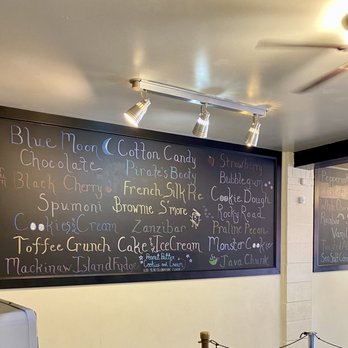 Blue Moon Cotton Candy Strawberry
Chocolate Pirate's Booty Bubblegum
Black Cherry French Silk Cookie Dough
Spumoni Brownie S'more Rocky Road
Cookies & Cream Zanzibar Praline Pecan
Toffee Crunch Cake & Ice Cream Monster Cookie
Mackinaw Island Fudge Peanut Butter Java Chunk
Cookies and Cream
Vanil
Sea Salt Car